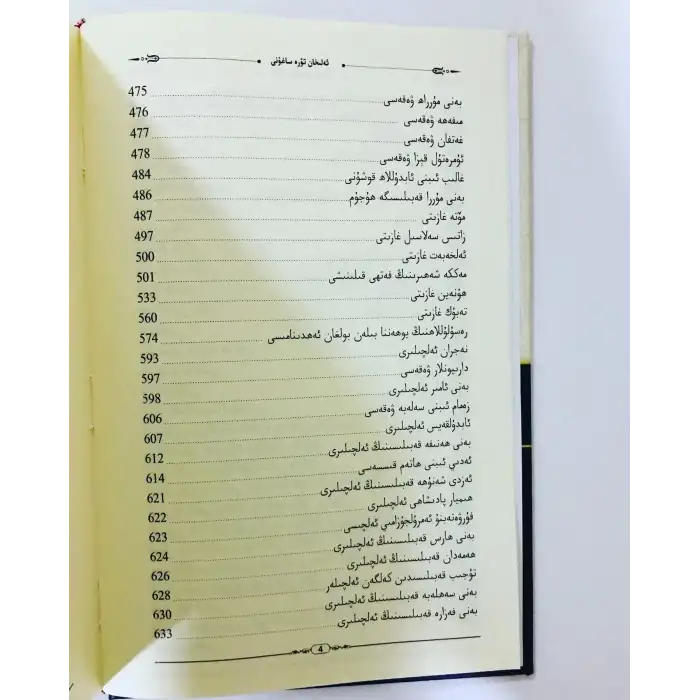 ئەلىخان تۆرە ساغۇنى
بەنى مۇرراھ ۋەقەسى 475
مىفەھە ۋەقەسى 476
غەتفان ۋەقەسى 477
ئۇمرەتۇل قېزا ۋەقەسى 478
غالىب ئىبنى ئابدۇللاھ قوشۇنى 484
بەنى مۇررا قەبىلىسىگە ھۇجۇم 486
مۆتە غازىتى 487
زاتىس سەلاسىل غازىتى 497
ئەلخەبەت غازىتى 500
مەككە شەھىرىنىڭ فەتھى قىلىنىشى 501
ھۇنەين غازىتى 533
تەبۇك غازىتى 560
رەسۇلۇللاھنىڭ يوھەننا بىلەن بولغان ئەھدىنامىسى 574
نەجران ئەلچىلىرى 593
دارىيونلار ۋەقەسى 597
بەنى ئامىر ئەلچىلىرى 598
زەمام ئىبنى سەلەبە ۋەقەسى 606
ئابدۇلقەيس ئەلچىلىرى 607
بەنى ھەنىفە قەبىلىسىنىڭ ئەلچىلىرى 612
ئەدىي ئىبنى ھاتەم قىسسەسى 614
ئەزدى شەنۇھە قەبىلىسىنىڭ ئەلچىلىرى 621
ھىميار پادىشاھى ئەلچىلىرى 622
فۇرۋەتەبنۇ ئەمرۇلجۇزامىي ئەلچىسى 623
بەنى ھارس قەبىلىسىنىڭ ئەلچىلىرى 624
ھەمەدان قەبىلىسىنىڭ ئەلچىلىرى 626
تۇجىب قەبىلىسىدىن كەلگەن ئەلچىلەر 628
بەنى سەھلەبە قەبىلىسىنىڭ ئەلچىلىرى 630
بەنى فەزارە قەبىلىسىنىڭ ئەلچىلىرى 633
4